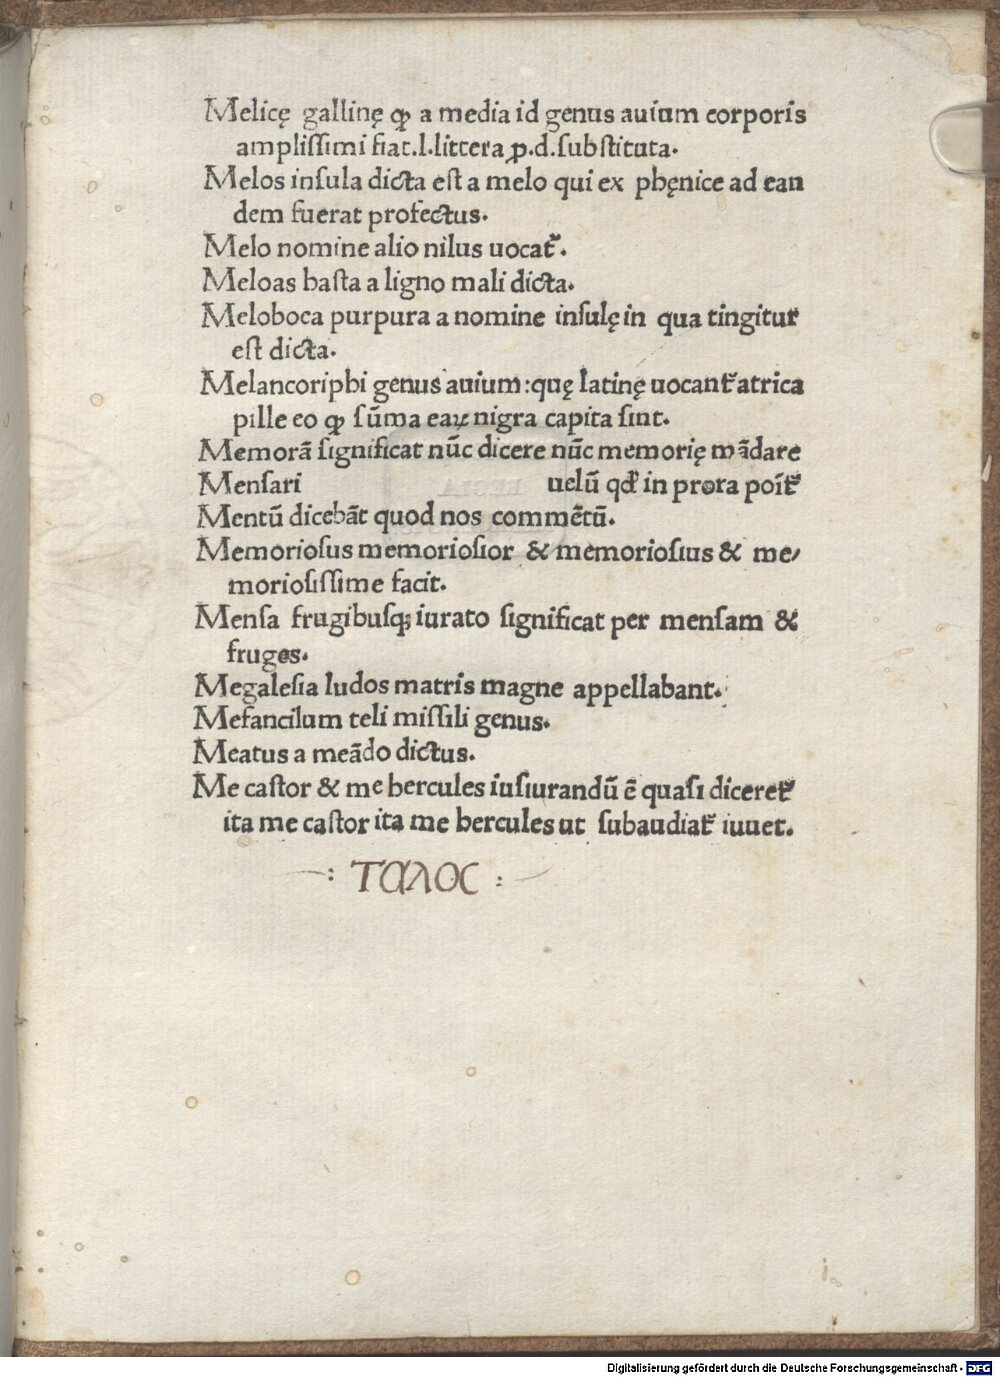 Melicę gallinę ꝙ a media id genus auium corporis
ampliſſimi fiat.l.littera ꝓ.d.ſubſtituta.
Melos inſula dicta eſt a melo qui ex phęnice ad ean
dem fuerat profectus.
Melo nomine alio nilus uocat᷑.
Meloas haſta a ligno mali dicta.
Meloboca purpura a nomine inſulę in qua tingitur
eſt dicta.
Melancoriphi genus auium:quę latinę uocant᷑ atrica
pille eo ꝙ ſūma eaꝝ nigra capita ſint.
Memorā ſignificat nūc dicere nūc memorię mādare
Menſari uelū qđ in prora poīt᷑
Mentū dicebāt quod nos commētū.
Memorioſus memorioſior & memorioſius & me/
morioſiſſime facit.
Menſa frugibuſqꝫ iurato ſignificat per menſam &
fruges.
Megaleſia ludos matris magne appellabant.
Meſancilum teli miſſili genus.
Meatus a meādo dictus.
Me caſtor & me hercules iuſiurandū ē quaſi diceret᷑
ita me caſtor ita me hercules ut ſubaudiat᷑ iuuet.
: ΤΑΛΟC :
REGIA
Digitalisierung gefördert durch die Deutsche Forschungsgemeinschaft - DFG